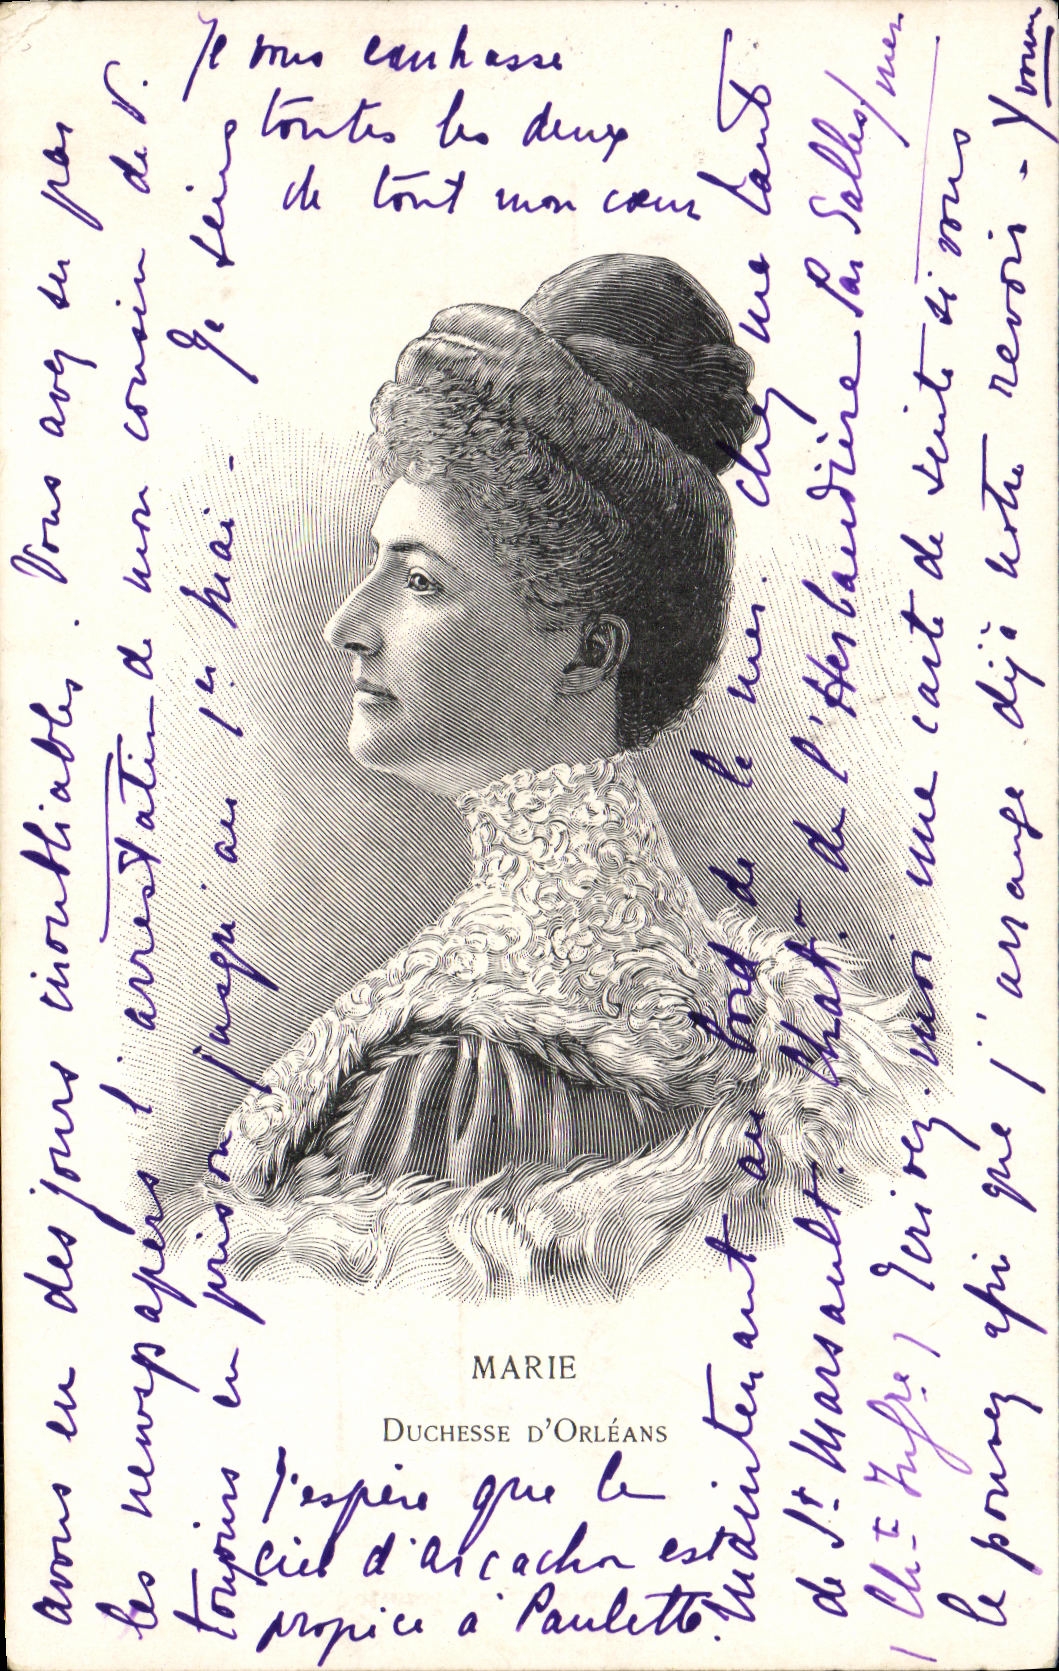 avons eu des jours inoubliables. Vous avez su par
les newspapers l'arrestation de mon cousin de V.
toujours en prison jusqu'au 1er mai - Je
Maintenant au bord de la mer. chez une tante
de St Marsault. Chat. de l'Herbaudière Par Salles s/ mer
(Ch.te Infre) Ecrivez-moi une carte de suite si vous
le pouvez afin que j'arrange déjà notre revoir - Yvonne
Je vous embrasse
toutes les deux
de tout mon cœur
MARIE
DUCHESSE D'ORLÉANS
J'espère que le
ciel d'Arcachon est
propice à Paulette.